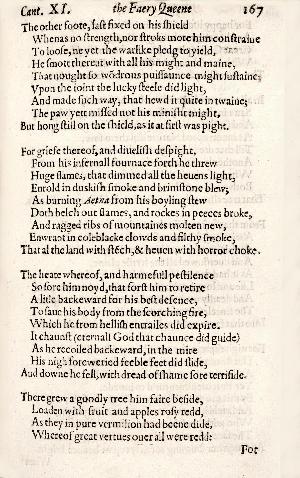 Cant. XI. the Faery Queene 167
The other foote, fast fixed on his shield
Whenas no strength, nor stroks mote him constraine
To loose, ne yet the warlike pledg to yield,
He smott thereat with all his might and maine,
That nought so wõdrous puissaunce might sustaine;
Vpon the ioint the lucky steele did light,
And made such way, that hewd it quite in twaine;
The paw yett missed not his minisht might,
But hong still on the shield, as it at first was pight.
For griefe thereof, and diuelish despight,
From his infernall fournace forth he threw
Huge flames, that dimmed all the heuens light,
Enrold in duskish smoke and brimstone blew;
As burning Aetna from his boyling stew
Doth belch out flames, and rockes in peeces broke,
And ragged ribs of mountaines molten new,
Enwrapt in coleblacke clowds and filthy smoke,
That al the land with stẽch, & heuen with horror choke.
The heate whereof, and harmefull pestilence
So sore him noyd, that forst him to retire
A litle backeward for his best defence,
To saue his body from the scorching fire,
Which he from hellish entrailes did expire.
It chaunst (eternall God that chaunce did guide)
As he recoiled backeward, in the mire
His nigh foreweried feeble feet did slide,
And downe he fell, with dread of shame sore terrifide.
There grew a goodly tree him faire beside,
Loaden with fruit and apples rosy redd,
As they in pure vermilion had beene dide,
Whereof great vertues ouer all were redd:
For